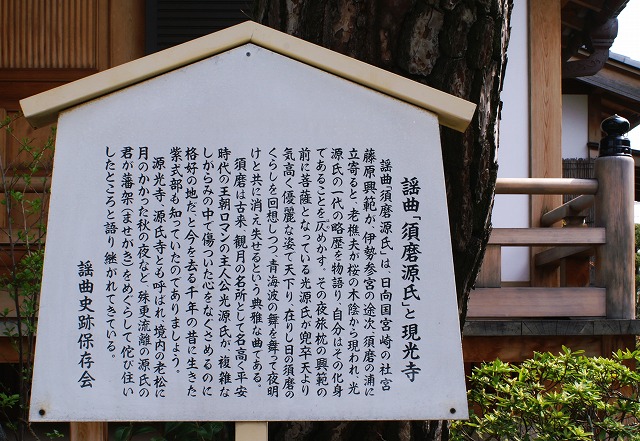 謡曲「須磨源氏」と現光寺
謡曲「須磨源氏」は、日向国宮崎の社宮
藤原興範が、伊勢参宮の途次、須磨の浦に
立寄ると、老樵夫が桜の木陰から現われ、光
源氏の一代の略歴を物語り、自分はその化身
であることを仄めかす。その夜旅枕の興範の
前に菩薩となっている光源氏が兜卒天より
気高く優麗な姿で天下り、在りし日の須磨の
くらしを回想しつつ青海波の舞を舞って夜明
けと共に消え失せるという典雅な曲である。
須磨は古来、観月の名所として名高く平安
時代の王朝ロマンの主人公光源氏が、複雑な
しがらみの中で傷ついた心をなぐさめるのに
格好の地だ、と今を去る千年の昔に生きた
紫式部も知っていたのでありましょう。
源光寺、源氏寺とも呼ばれ、境内の老松に
月のかかった秋の夜など、殊更流離の源氏の
君が藩架（ませがき）をめぐらして侘び住い
したところと語り継がれてきている。
謡曲史跡保存会